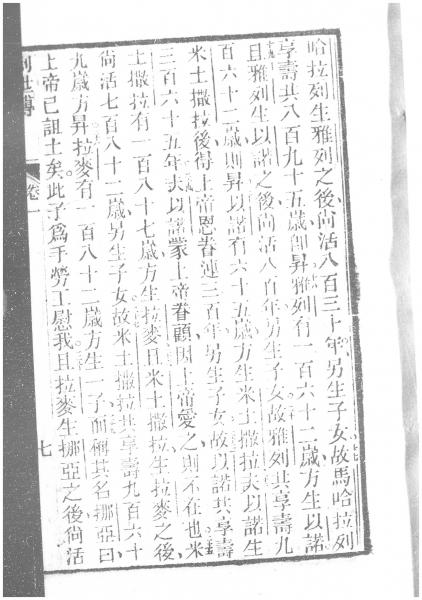 哈拉列生雅列之後尚活八百三十年另生子女故馬哈拉列
享壽共八百九十五歲卽昇雅列有一百六十二歲方生以諾
且雅列生以諾之後尚活八百年另生子女故雅列共享壽九
百六十二歲則昇以諾有六十五歲方生米土撒拉夫以諾生
米土撒拉後得上帝恩眷連三百年另生子女故以諾共享壽
三百六十五年夫以諾蒙上帝眷顧因上帝愛之則不在也米
土撒拉有一百八十七歲方生拉麥且米土撒拉生拉麥之後
尚活七百八十二歲另生子女故米土撒拉共享壽九百六十
九歲方昇拉麥有一百八十二歲方生一子而稱其名挪亞曰
上帝已詛土矣此子爲手勞工慰我且拉麥生挪亞之後尚活
創世傳
卷一
七